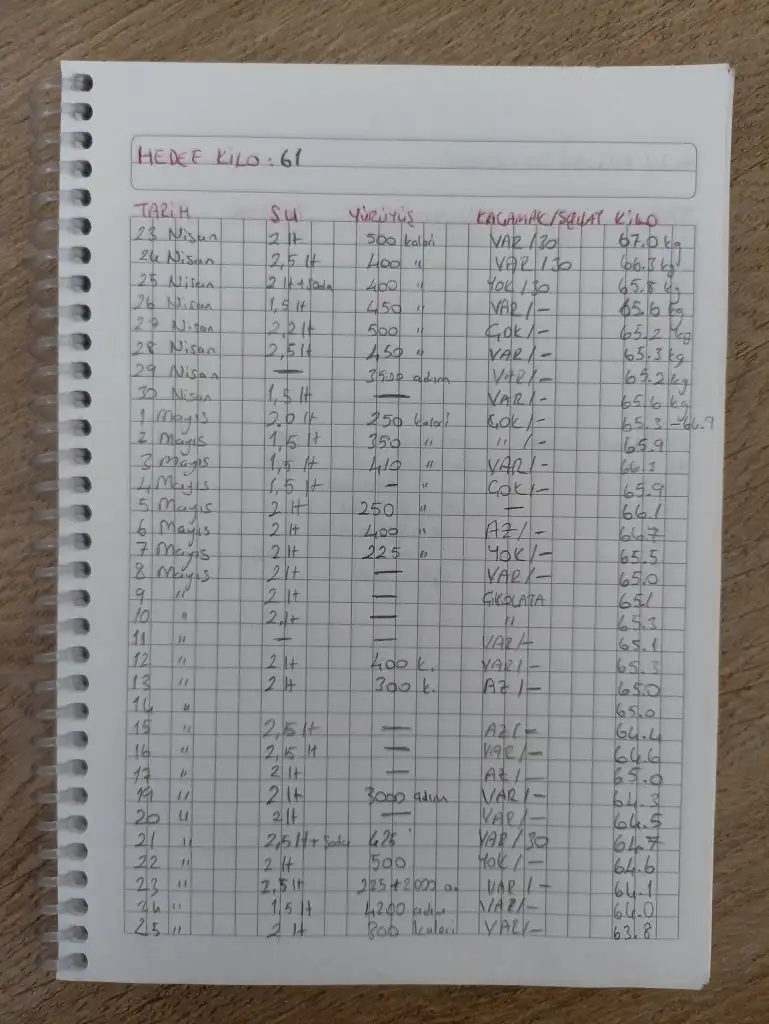 HEDEF KİLO: 61
TARİH SU YÜRÜYÜŞ KAÇAMAK/SEYAT KİLO
23 Nisan 2 lt 500 kalori VAR/30 67.0 kg
24 Nisan 2,5 lt 400 " VAR/30 66.3 kg
25 Nisan 2 lt+soda 400 " YOK/30 65.8 kg
26 Nisan 1,5 lt 450 " VAR/- 65.6 kg
27 Nisan 2,2 lt 500 " ÇOK/- 65.2 kg
28 Nisan 2,5 lt 450 " VAR/- 65.3 kg
29 Nisan — 3500 adım VAR/- 65.2 kg
30 Nisan 1,5 lt — VAR/- 65.6 kg
1 Mayıs 2.0 lt 250 kalori ÇOK/- 65.3 -64.9
2 Mayıs 1,5 lt 350 " " /- 65.9
3 Mayıs 1,5 lt 410 " VAR/- 66.1
4 Mayıs 1,5 lt - " ÇOK/- 65.9
5 Mayıs 2 lt 250 " — 66.1
6 Mayıs 2 lt 400 " AZ/-
7 Mayıs 2 lt 225 " YOK/- 65.5
8 Mayıs 2 lt — VAR/- 65.0
9 " 2 lt — ÇİKOLATA 65.1
10 " 2 lt — " 65.3
11 " — — VAR/- 65.1
12 " 2 lt 400 k. VAR/- 65.3
13 " 2 lt 300 k. AZ/- 65.0
14 " 65.0
15 " 2,5 lt — AZ/- 64.4
16 " 2,5 lt — VAR/- 64.6
17 " 2 lt — AZ/- 65.0
19 " 2 lt 3000 adım VAR/- 64.3
20 " 2 lt — VAR/- 64.5
21 " 2,5 lt+soda 425 VAR/30 64.7
22 " 2 lt 500 YOK/- 64.6
23 " 2,5 lt 225+2000 a. VAR/- 64.1
24 " 1,5 lt 4200 adım VAR/- 64.0
25 " 2 lt 800 kalori VAR/- 63.8